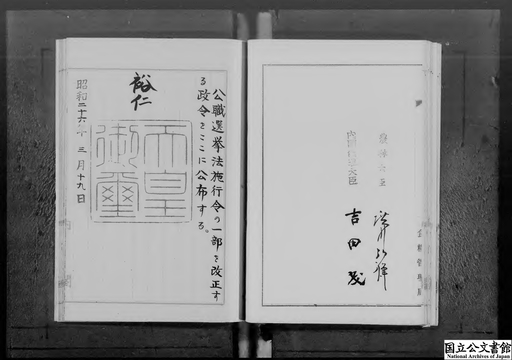 公職選挙法施行令の一部を改正す
る政令をここに公布する。
裕仁
天皇
御璽
昭和二十六年三月十九日
内閣総理大臣
吉田茂
国立公文書館
National Archives of Japan